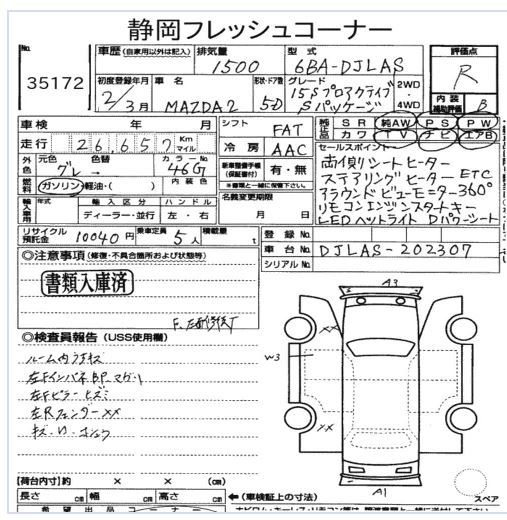 静岡フレッシュコーナー
No. 35172
車歴 (自家用以外は記入) 排気量 1500 型式 6BA-DJLAS 評価点 R
初度登録年月 2/3月 車名 MAZDA2 形状・ドア数 5D グレード 15Sプロアクティブ Sパッケージ 2WD 4WD 内装補助評価 B
車検 年 月 シフト FAT SR 純AW PS PW
走行 26,657 Km マイル 冷房 AAC カワ TV ナビ エアB
外色 元色 グレー 色替 カラーNo. 46G 新車整備手帳(保証書付) 有・無 セールスポイント
※書類と一緒に保管下さい。 両側シートヒーター
燃料 ガソリン・軽油・( ) 内装色 名義変更期限 ステアリングヒーター ETC
輸入車用 輸入区分 ハンドル 月 日 アラウンドビューモニター360°
ディーラー・並行 左・右 リモコンエンジンスタートキー
LEDヘッドライト Dパワーシート
リサイクル預託金 10040円 乗車定員 5人 積載量 t 登録No.
車台No. DJLAS-202307
シリアルNo.
◎注意事項 (修復・不具合箇所および状態等)
書類入庫済
◎検査員報告 (USS使用欄)
ルーム内
左Fインパネ BP
左Fピラー ヒズミ
左Rフェンダー XX
A3
XX
W3
XX
A1
スペア
【荷台内寸】約 × × (cm)
長さ cm 幅 cm 高さ cm ←(車検証上の寸法)
希望出品コーナー